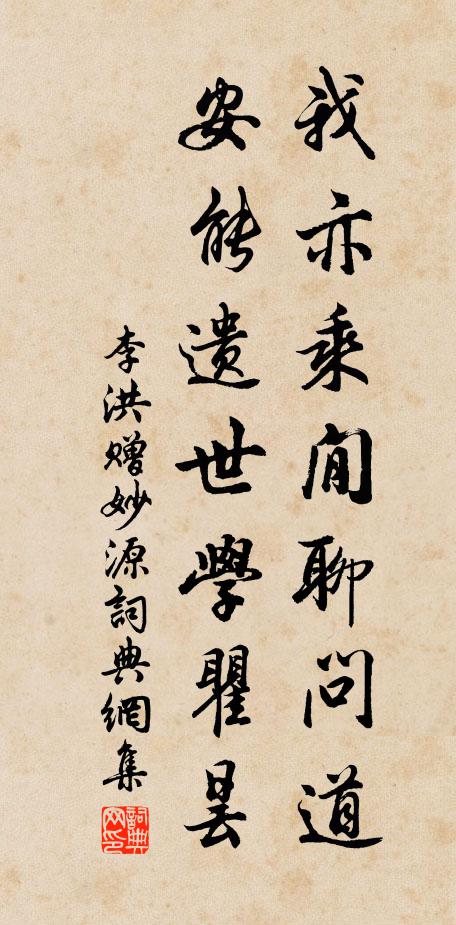 我亦乘閒聊問道
安能遺世學瞿曇
李洪贈妙源詞典網集
詞典网印